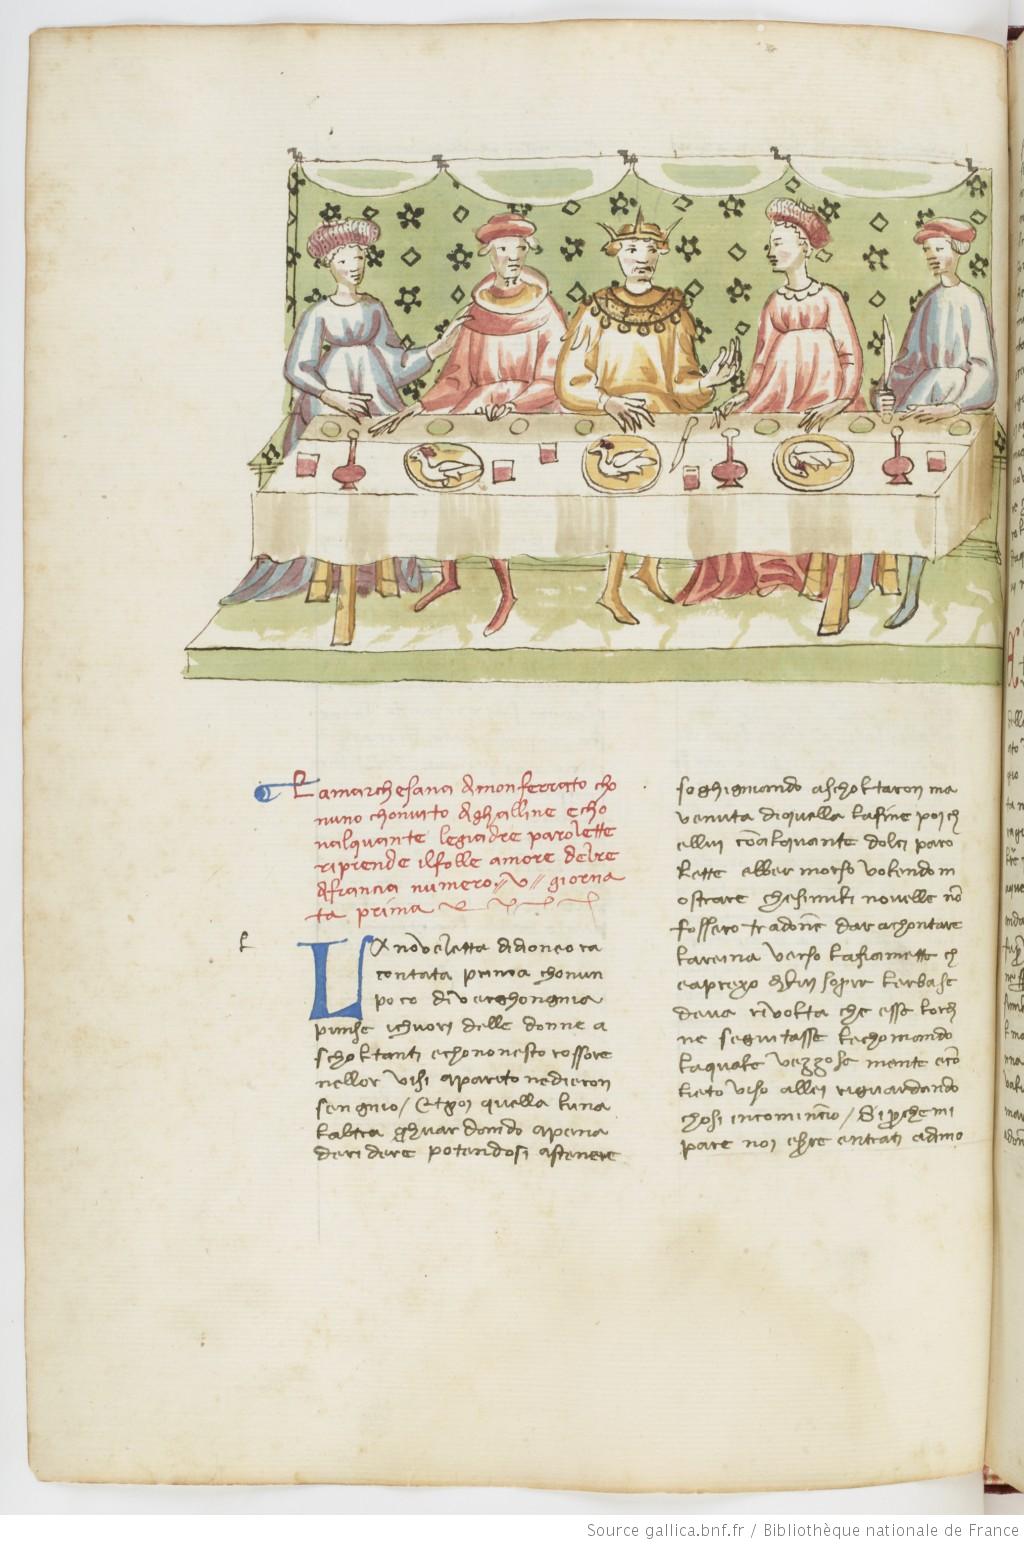 Lamarchesana dimonferrato cho
nuno chonvito dighalline echo
nalquante legiadre parolette
riprende ilfolle amore delre
difrancia numero // v // giorna
ta prima
l
LA noveletta didioneo ra
contata prima chonun
poco diverghongnia
punse ichuori delle donne a
scholtanti echononesto rossore
nellor visi aparito nedieron
sengnio / Et poi quella luna
laltra ghuardando apena
deridere potendosi astenere
soghigniando ascholtaron ma
venuta diquella lafine poich
ellui cō alquante dolci paro
lette ebber morso volendo m
ostrare chesimili novelle nō
fossero tradonne dar achontare
lareina verso lafiamette ch
eapresso di lui sopra lerba se
deva rivolta che esse lordi
ne seguitasse lechomando
laquale vezzose mente ecō
lieto viso allei riguardando
chosi incomincio / Si perche mi
pare noi essere entrati adimo
Source gallica.bnf.fr / Bibliothèque nationale de France